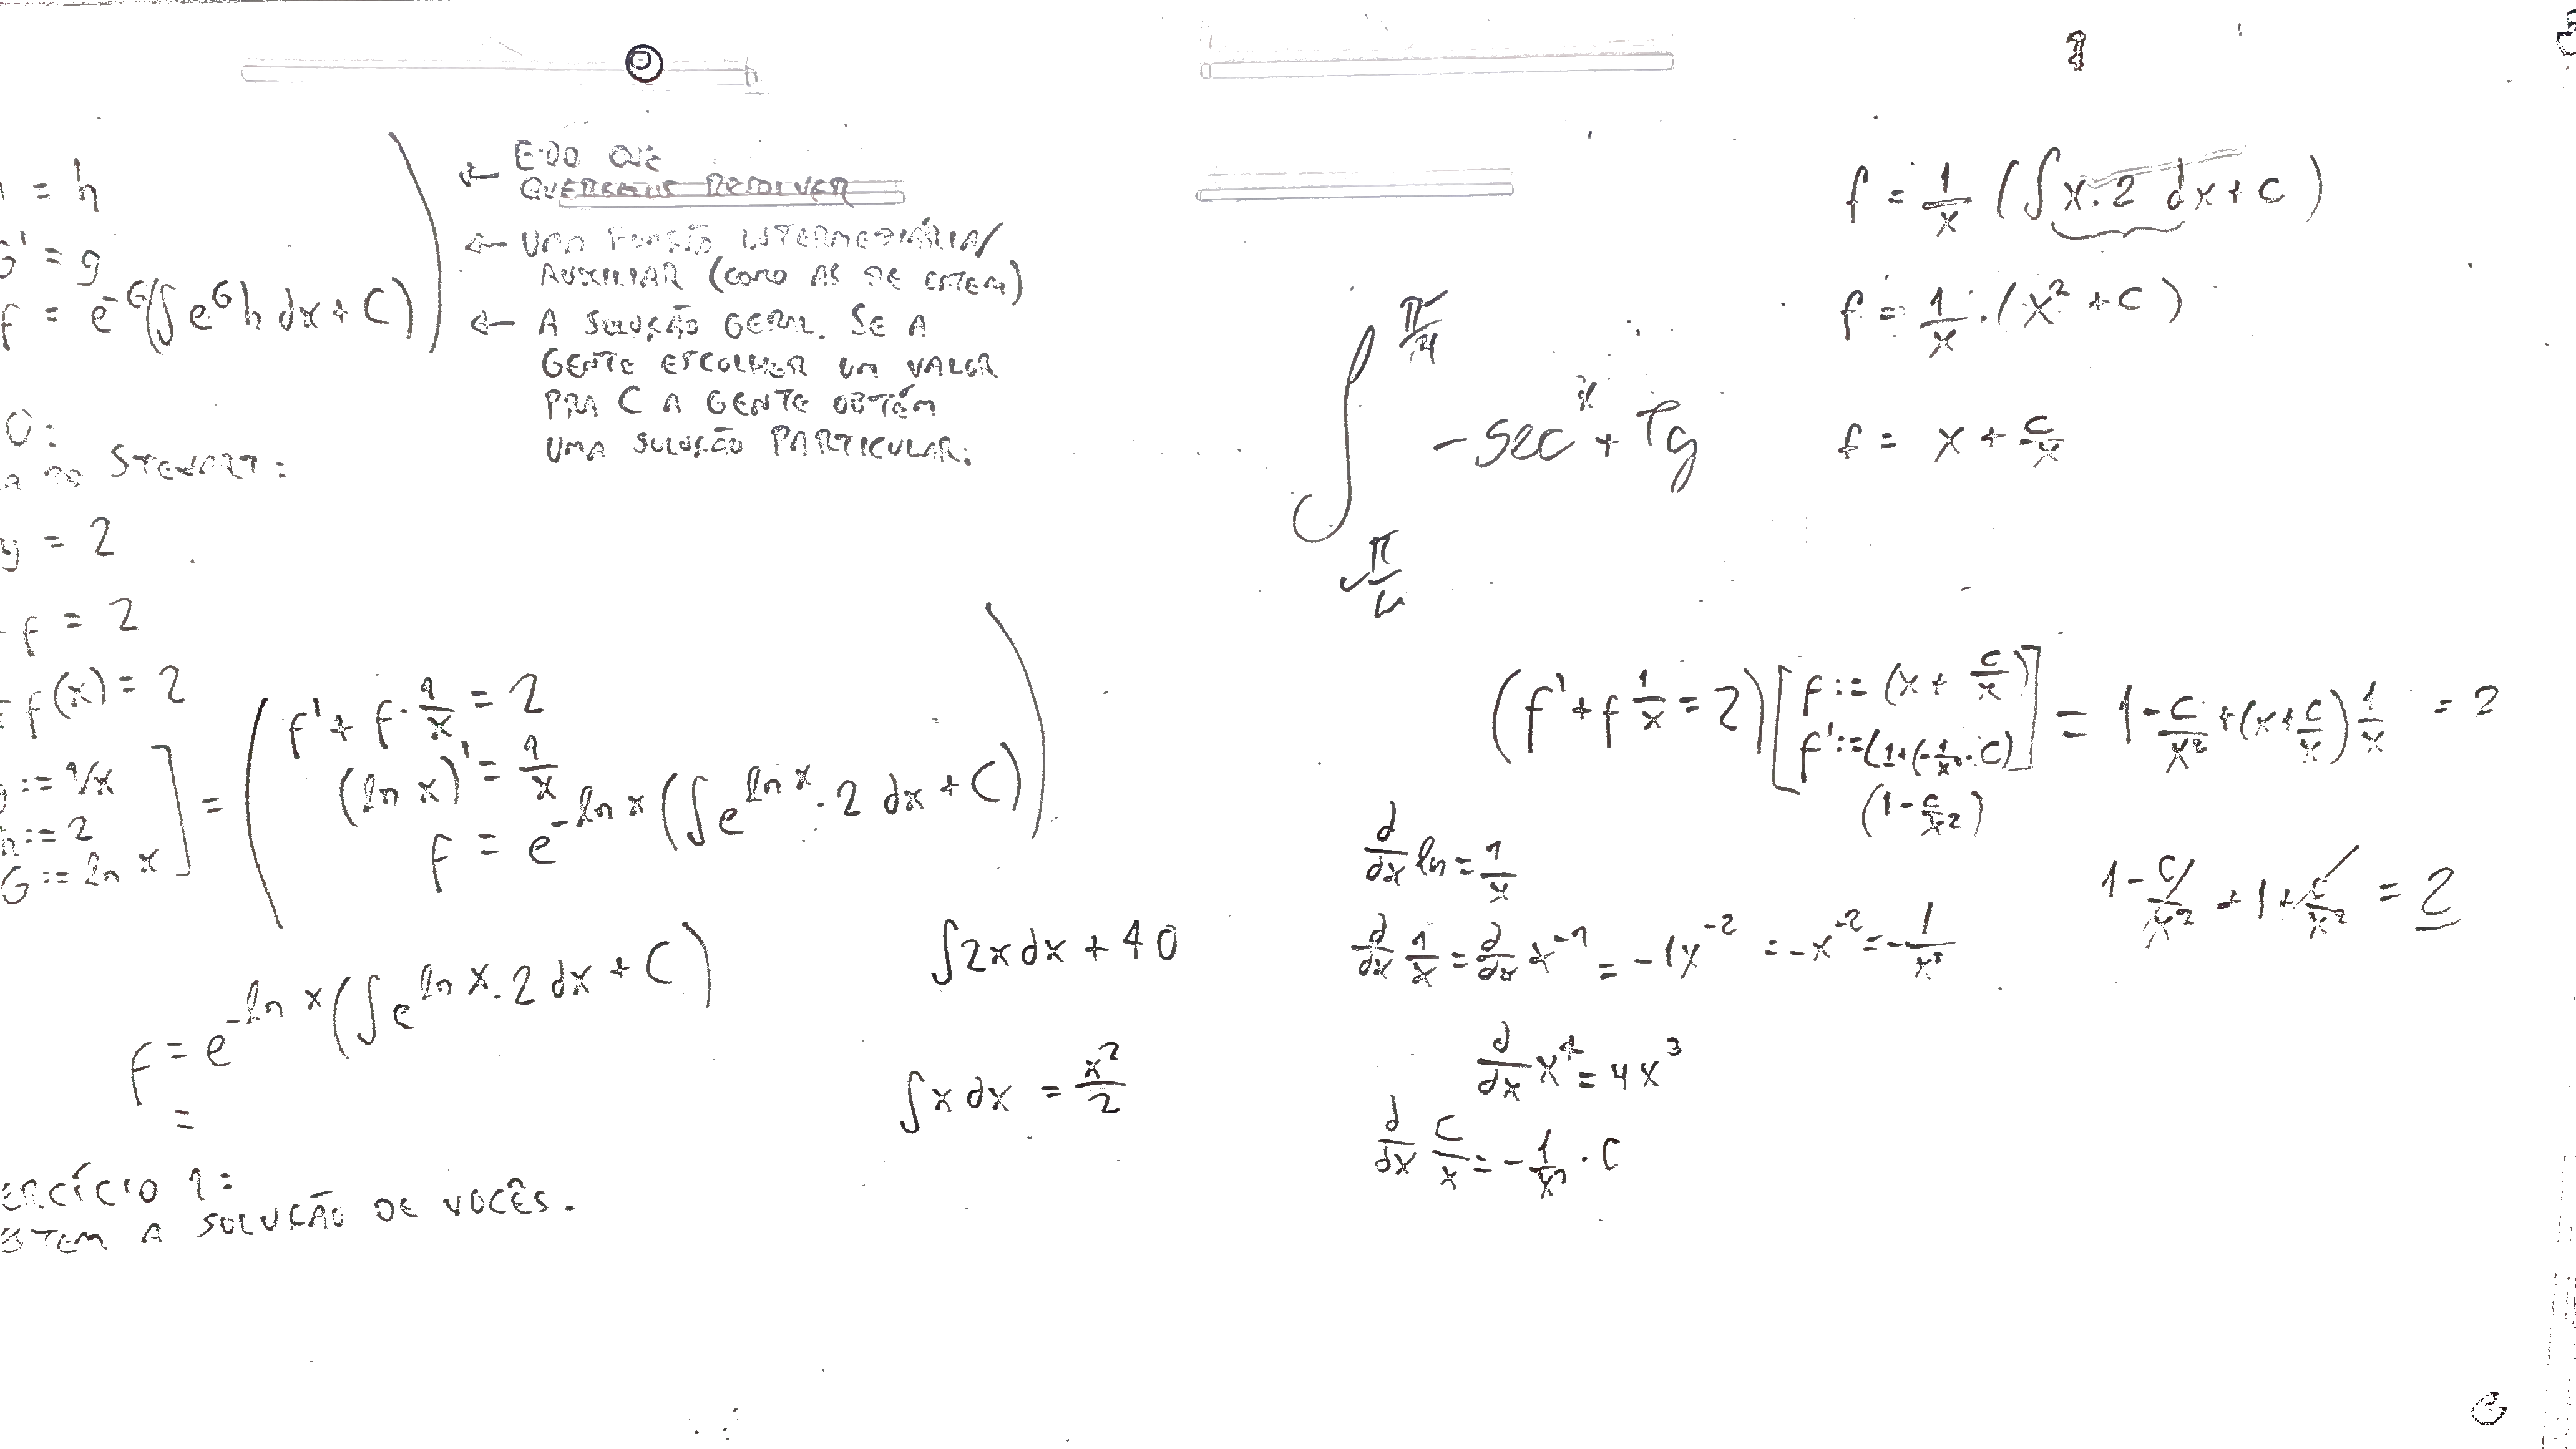 = h
G' = g
f = e^{-G}(∫e^{G} h dx + C)
← EDO QUE
QUEREMOS RESOLVER
← UMA FUNÇÃO INTERMEDIÁRIA/
AUXILIAR (COMO AS DE
← A SOLUÇÃO GERAL. SE A
GENTE ESCOLHER UM VALOR
PRA C A GENTE OBTÉM
UMA SOLUÇÃO PARTICULAR.
O:
STEWART:
y = 2
f = 2
f(x) = 2
g := 1/x
h := 2
G := ln x
] = ( f' + f · 1/x = 2
(ln x)' = 1/x
f = e^{-ln x}(∫e^{ln x} · 2 dx + C) )
f = e^{-ln x}(∫e^{ln x} · 2 dx + C)
=
∫2x dx + 40
∫x dx = x²/2
ERCÍCIO 1:
BTEM A SOLUÇÃO DE VOCÊS.
f = 1/x (∫x · 2 dx + C)
f = 1/x · (x² + C)
f = x + C/x
-sec x + Tg
(f' + f 1/x = 2) [f := (x + C/x)
f' := (1 + (-1/x² · C)] = 1 - C/x² + (x + C/x) 1/x = 2
(1 - C/x²)
1 - C/x² + 1 + C/x² = 2
d/dx ln = 1/x
d/dx 1/x = d/dx x^{-1} = -1x^{-2} = -x^{-2} = -1/x²
d/dx x⁴ = 4x³
d/dx C/x = -1/x² · C